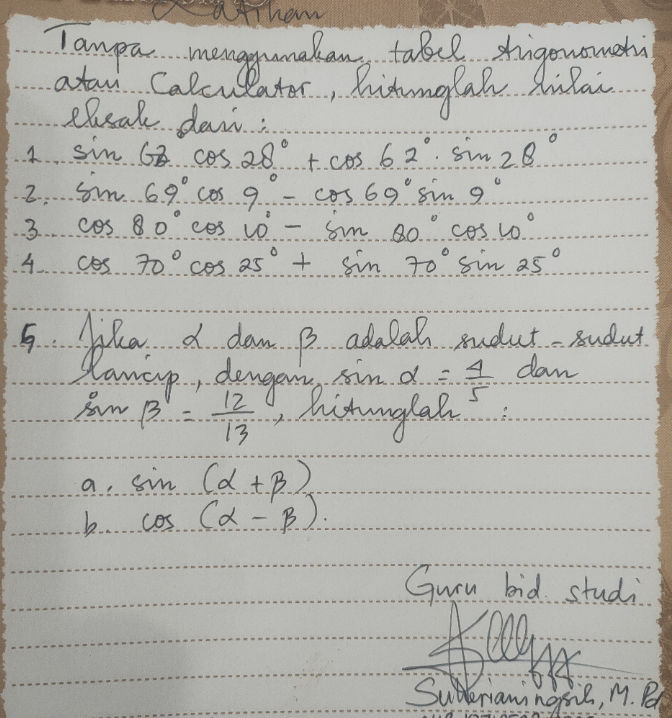 Latihan
Tanpa menggunakan tabel trigonometri
atau Calculator, hitunglah nilai
eksak dari :
1. sin 62 cos 28° + cos 62°. sin 28°
2. sin 69° cos 9° - cos 69° sin 9°
3. cos 80° cos 10° - sin 80° cos 10°
4. cos 70° cos 25° + sin 70° sin 25°
5. Jika α dan β adalah sudut - sudut
lancip, dengan sin α = 4/5 dan
sin β = 12/13, hitunglah :
a. sin (α + β)
b. cos (α - β).
Guru bid. studi
M. Pd